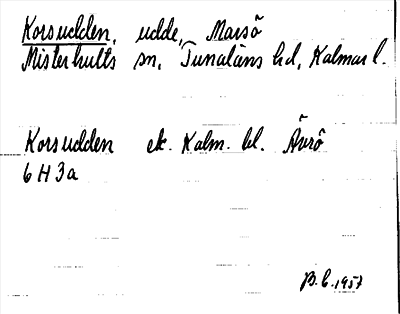 Korsudden, udde, Marsö
Misterhults sn, Tunaläns hd, Kalmar l.
Korsudden ek. Kalm. bl. Ävrö
6 H 3a
B. C. 1957